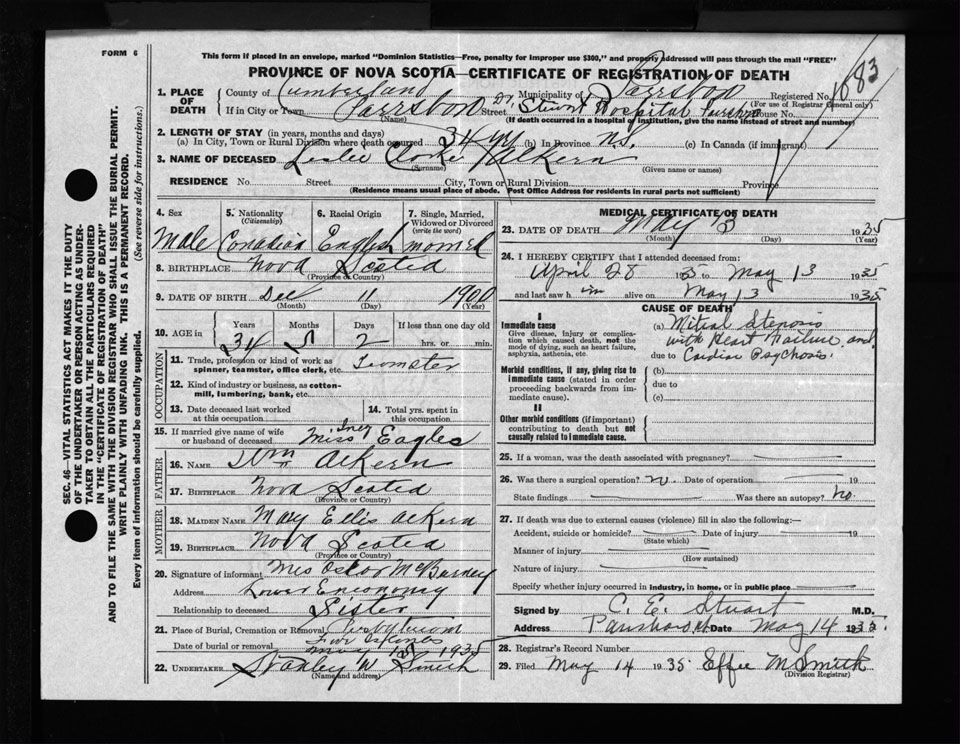 FORM 6
This form if placed in an envelope, marked "Dominion Statistics—Free, penalty for improper use $300," and properly addressed will pass through the mail "FREE"
PROVINCE OF NOVA SCOTIA—CERTIFICATE OF REGISTRATION OF DEATH
1683
1. PLACE OF DEATH
County of Cumberland Municipality of Parrsboro Registered No.
(For use of Registrar General only)
If in City or Town Parrsboro Street Dr. Stewart Hospital House No.
(Name) (If death occurred in a hospital or institution, give the name instead of street and number)
2. LENGTH OF STAY (in years, months and days)
(a) In City, Town or Rural Division where death occurred 34 yr (b) In Province N.S. (c) In Canada (if immigrant)
3. NAME OF DECEASED Leslie Aikern
(Surname) (Given name or names)
RESIDENCE No. Street City, Town or Rural Division Province
(Residence means usual place of abode. Post Office Address for residents in rural parts not sufficient)
4. Sex 5. Nationality (Citizenship) 6. Racial Origin 7. Single, Married, Widowed or Divorced (write the word)
Male Canadian English
8. BIRTHPLACE Nova Scotia
(Province or Country)
9. DATE OF BIRTH Dec 11 1900
(Month) (Day) (Year)
10. AGE in Years Months Days If less than one day old
34 5 2 hrs. or min.
OCCUPATION
11. Trade, profession or kind of work as spinner, teamster, office clerk, etc. Teamster
12. Kind of industry or business, as cotton-mill, lumbering, bank, etc.
13. Date deceased last worked at this occupation
14. Total yrs. spent in this occupation
15. If married give name of wife or husband of deceased Miss Inez Eagles
FATHER
16. NAME Wm Aikern
17. BIRTHPLACE Nova Scotia
(Province or Country)
MOTHER
18. MAIDEN NAME Mary Ellis Aikern
19. BIRTHPLACE Nova Scotia
(Province or Country)
20. Signature of informant Mrs Oskar McBurney
Address Lower Economy
Relationship to deceased Sister
21. Place of Burial, Cremation or Removal Five Islands
Date of burial or removal May 15 1935
22. UNDERTAKER Stanley W Smith
(Name and address)
MEDICAL CERTIFICATE OF DEATH
23. DATE OF DEATH May 13 1935
(Month) (Day) (Year)
24. I HEREBY CERTIFY that I attended deceased from:
April 28 1935 to May 13 1935
and last saw him alive on May 13 1935
CAUSE OF DEATH
I
Immediate cause
Give disease, injury or complication which caused death, not the mode of dying, such as heart failure, asphyxia, asthenia, etc.
(a) Mitral Stenosis
with Heart Failure and
due to Cardiac Psychosis.
Morbid conditions, if any, giving rise to immediate cause (stated in order proceeding backwards from immediate cause).
(b)
due to
(c)
II
Other morbid conditions (if important) contributing to death but not causally related to immediate cause.
25. If a woman, was the death associated with pregnancy?
26. Was there a surgical operation? n. Date of operation 19
State findings Was there an autopsy? no.
27. If death was due to external causes (violence) fill in also the following:—
Accident, suicide or homicide? Date of injury 19
(State which)
Manner of injury
(How sustained)
Nature of injury
Specify whether injury occurred in industry, in home, or in public place
Signed by C. E. Stuart M.D.
Address Parrsboro Date May 14 1935
28. Registrar's Record Number
29. Filed May 14 1935 Effie M Smith
(Division Registrar)
SEC. 46—VITAL STATISTICS ACT MAKES IT THE DUTY
OF THE UNDERTAKER OR PERSON ACTING AS UNDER-
TAKER TO OBTAIN ALL THE PARTICULARS REQUIRED
IN THE "CERTIFICATE OF REGISTRATION OF DEATH"
AND TO FILE THE SAME WITH THE DIVISION REGISTRAR WHO SHALL ISSUE THE BURIAL PERMIT.
WRITE PLAINLY WITH UNFADING INK. THIS IS A PERMANENT RECORD.
Every item of information should be carefully supplied. (See reverse side for instructions.)